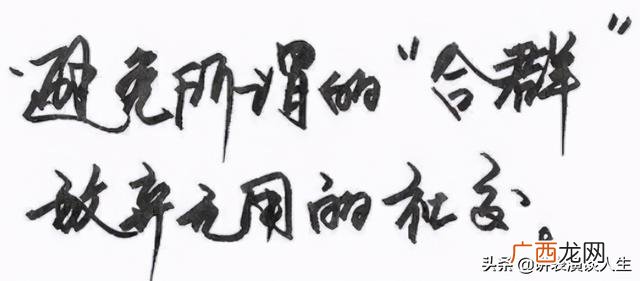 避免所谓的“合群”
放弃无用的社交。
广西龙网
头条@讲表演谈人生